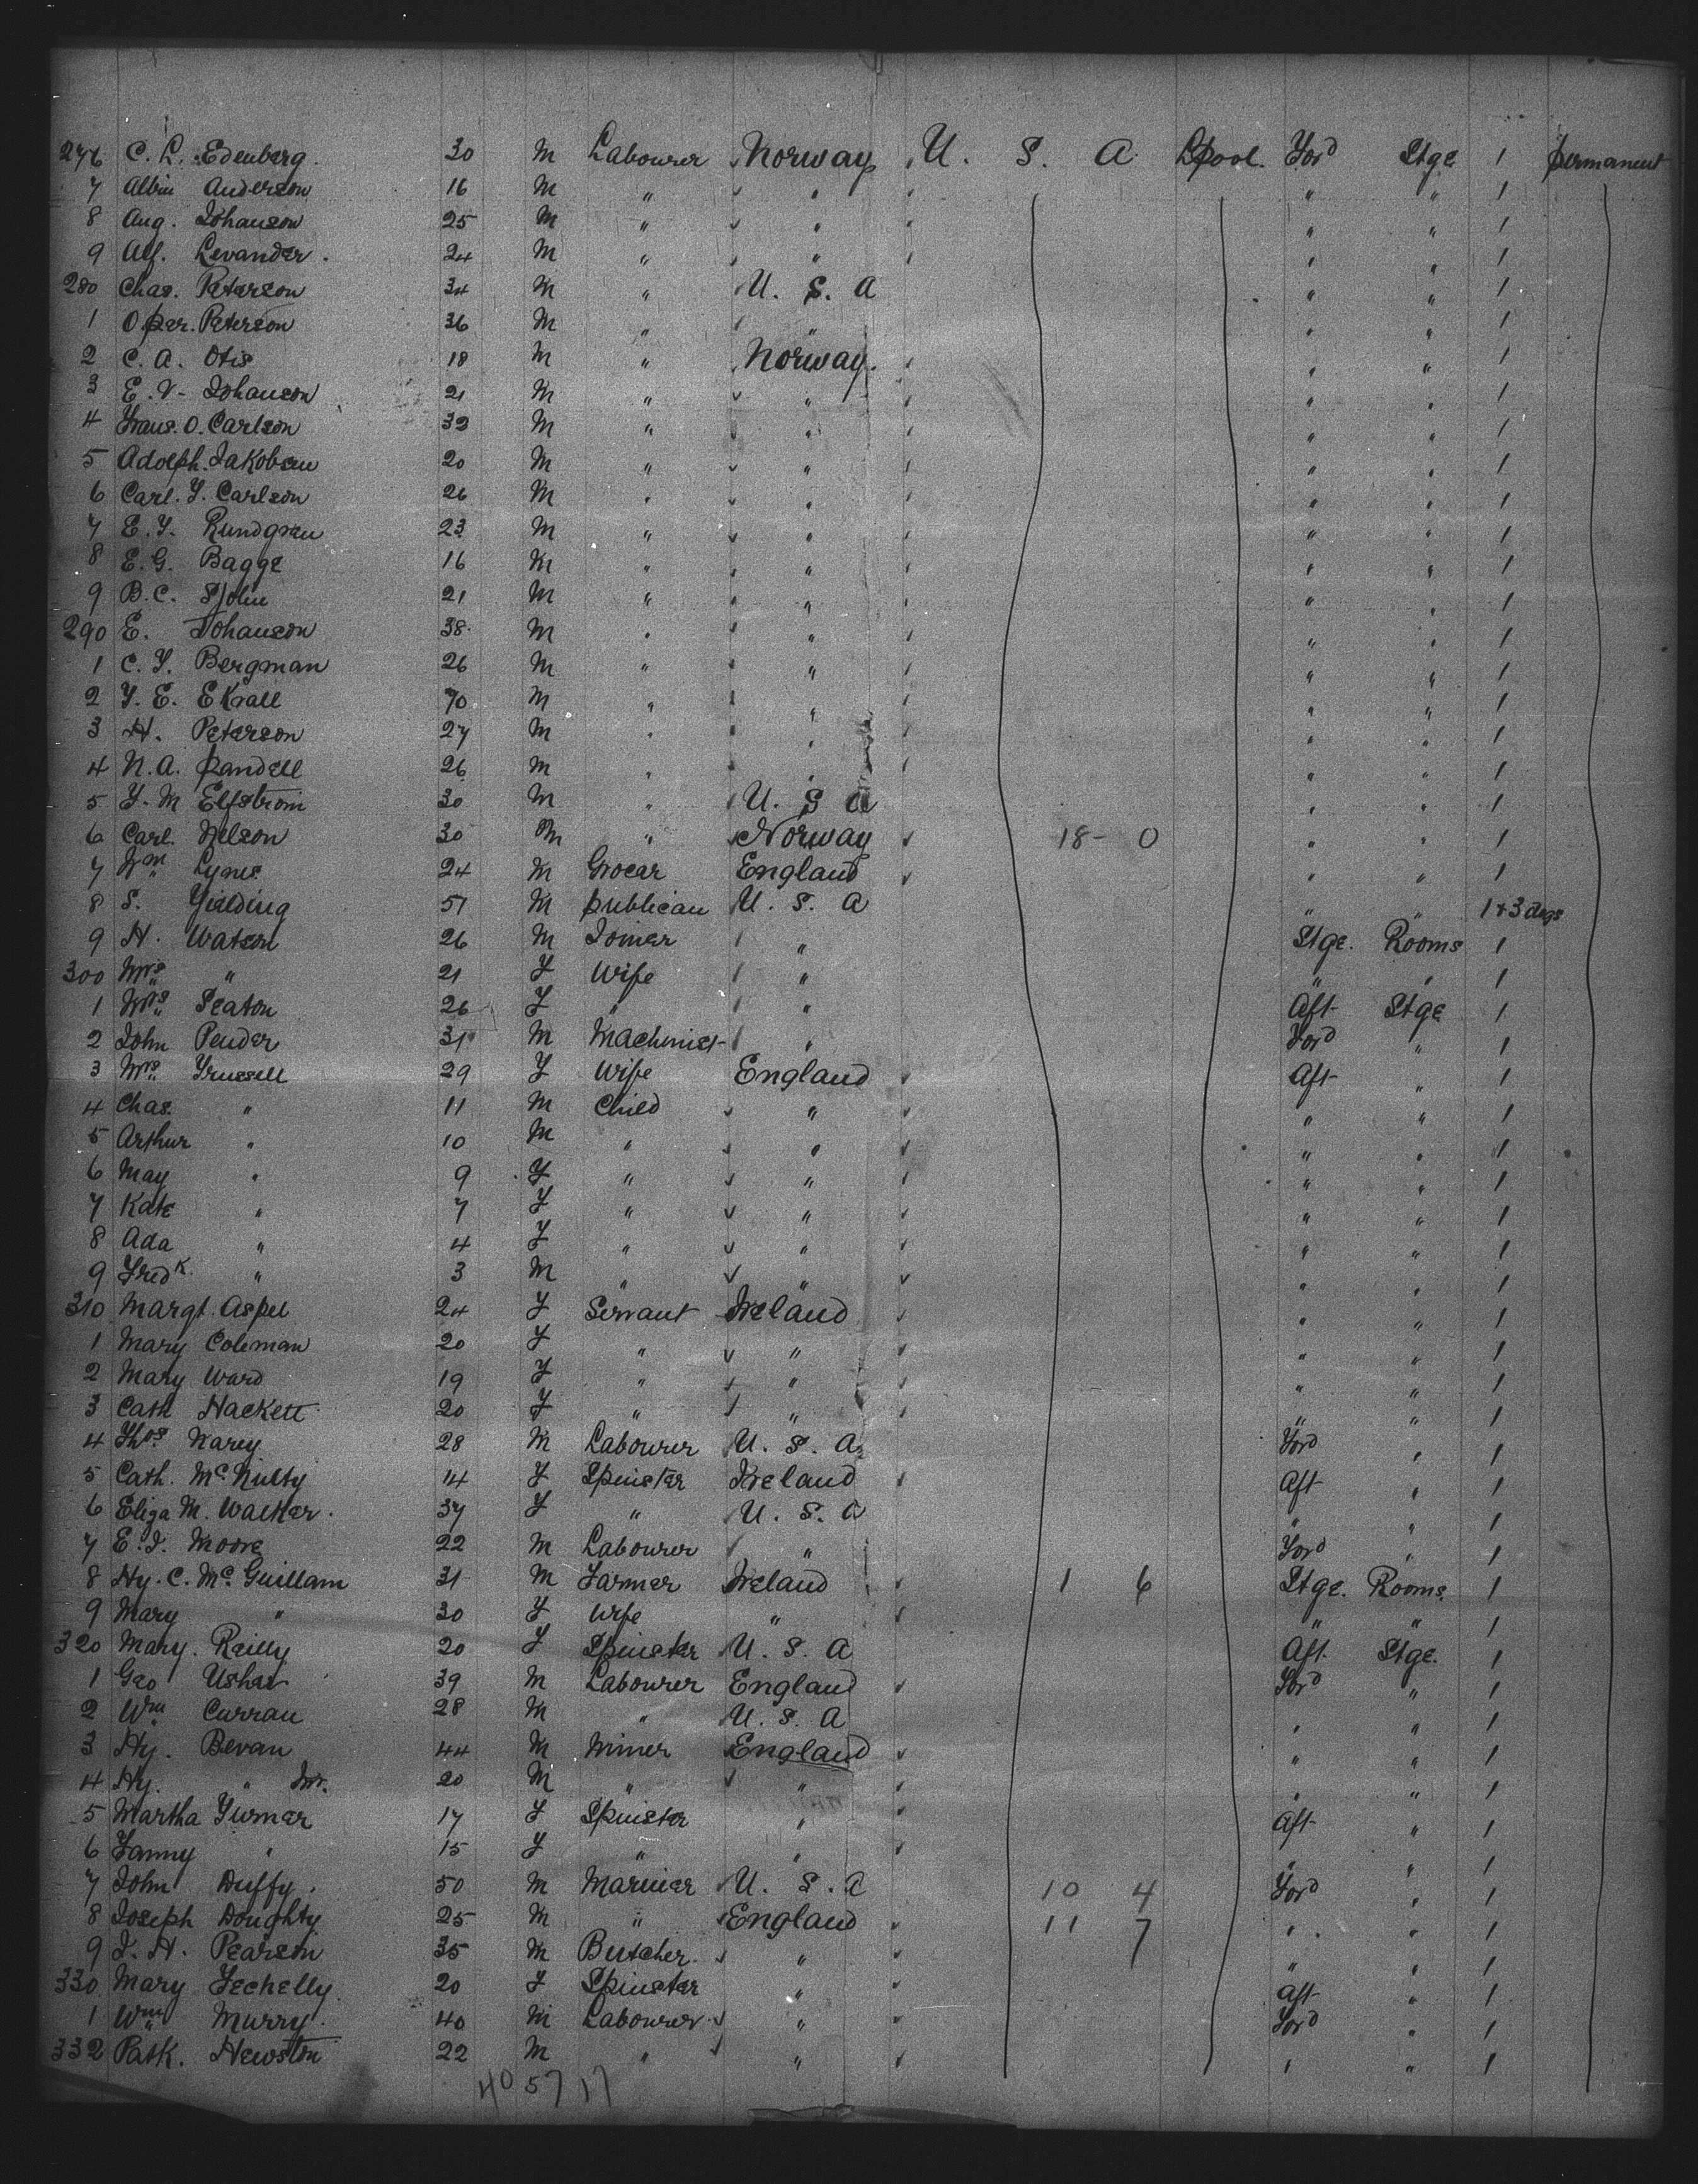 276 C. L. Edenberg. 30 M Labourer Norway U. S. A Lpool Ford Stge 1 permanent
7 Albin Anderson 16 M " " " " 1
8 Aug. Johanson 25 M " " " " 1
9 Alf. Levander. 24 M " " " " 1
280 Chas. Peterson 34 M " U. S. A " " 1
1 Oper. Peterson 36 M " " " " 1
2 C. A. Otis 18 M " Norway. " " 1
3 E. V. Johanson 21 M " " " " 1
4 Frans. O. Carlson 32 M " " " " 1
5 Adolph. Jakobson 20 M " " " " 1
6 Carl. F. Carlson 26 M " " " " 1
7 E. F. Rundgren 23 M " " " " 1
8 E. G. Bagge 16 M " " " " 1
9 B. C. Sjolin 21 M " " " " 1
290 E. Johanson 38 M " " " " 1
1 C. F. Bergman 26 M " " " " 1
2 F. E. Ekrall 70 M " " " " 1
3 H. Peterson 27 M " " " " 1
4 N. A. Randell 26 M " " " " 1
5 F. M Elfstrom 30 M " U. S A " " 1
6 Carl. Nelson 30 M " Norway 18 - 0 " " 1
7 Wm Lynes 24 M Grocer England " " 1
8 S. Yielding 51 M publican U. S. A " " 1 + 3 dogs
9 H. Watson 26 M Joiner " Stge. Rooms 1
300 Mrs " 21 F Wife " " " 1
1 Mrs Seaton 26 F " " Aft Stge 1
2 John Pender 31 M Machinist " Ford " 1
3 Mrs Trussell 29 F Wife England Aft " 1
4 Chas. " 11 M Child " " " 1
5 Arthur " 10 M " " " " 1
6 May " 9 F " " " " 1
7 Kate " 7 F " " " " 1
8 Ada " 4 F " " " " 1
9 Fredk. " 3 M " " " " 1
310 Margt. Aspel 24 F Servant Ireland " " 1
1 Mary Coleman 20 F " " " " 1
2 Mary Ward 19 F " " " " 1
3 Cath Hackett 20 F " " " " 1
4 Thos. Narey 28 M Labourer U. S. A. Ford " 1
5 Cath. McNulty 14 F Spinster Ireland Aft " 1
6 Eliza M. Walker. 37 F " U. S. A " " 1
7 E. J. Moore 22 M Labourer " Ford " 1
8 Hy. C. Mc Guillam 31 M Farmer Ireland 1 6 Stge. Rooms. 1
9 Mary " 30 F Wife " " " 1
320 Mary. Reilly 20 F Spinster U. S. A Aft. Stge. 1
1 Geo Usher 39 M Labourer England Ford " 1
2 Wm Curran 28 M " U. S. A " " 1
3 Hy. Bevan 44 M Miner England " " 1
4 Hy. " Jnr. 20 M " " " " 1
5 Martha Turner 17 F Spinster " Aft " 1
6 Fanny " 15 F " " " " 1
7 John Duffy. 50 M Mariner U. S. A 10 4 Ford " 1
8 Joseph Doughty 25 M " England 11 7 " " 1
9 J. H. Pearson 35 M Butcher. " 7 " " 1
330 Mary Fechelly 20 F Spinster " Aft " 1
1 Wm Murry. 40 M Labourer " Ford " 1
332 Patk. Hewston 22 M " " " " 1
40 57 17